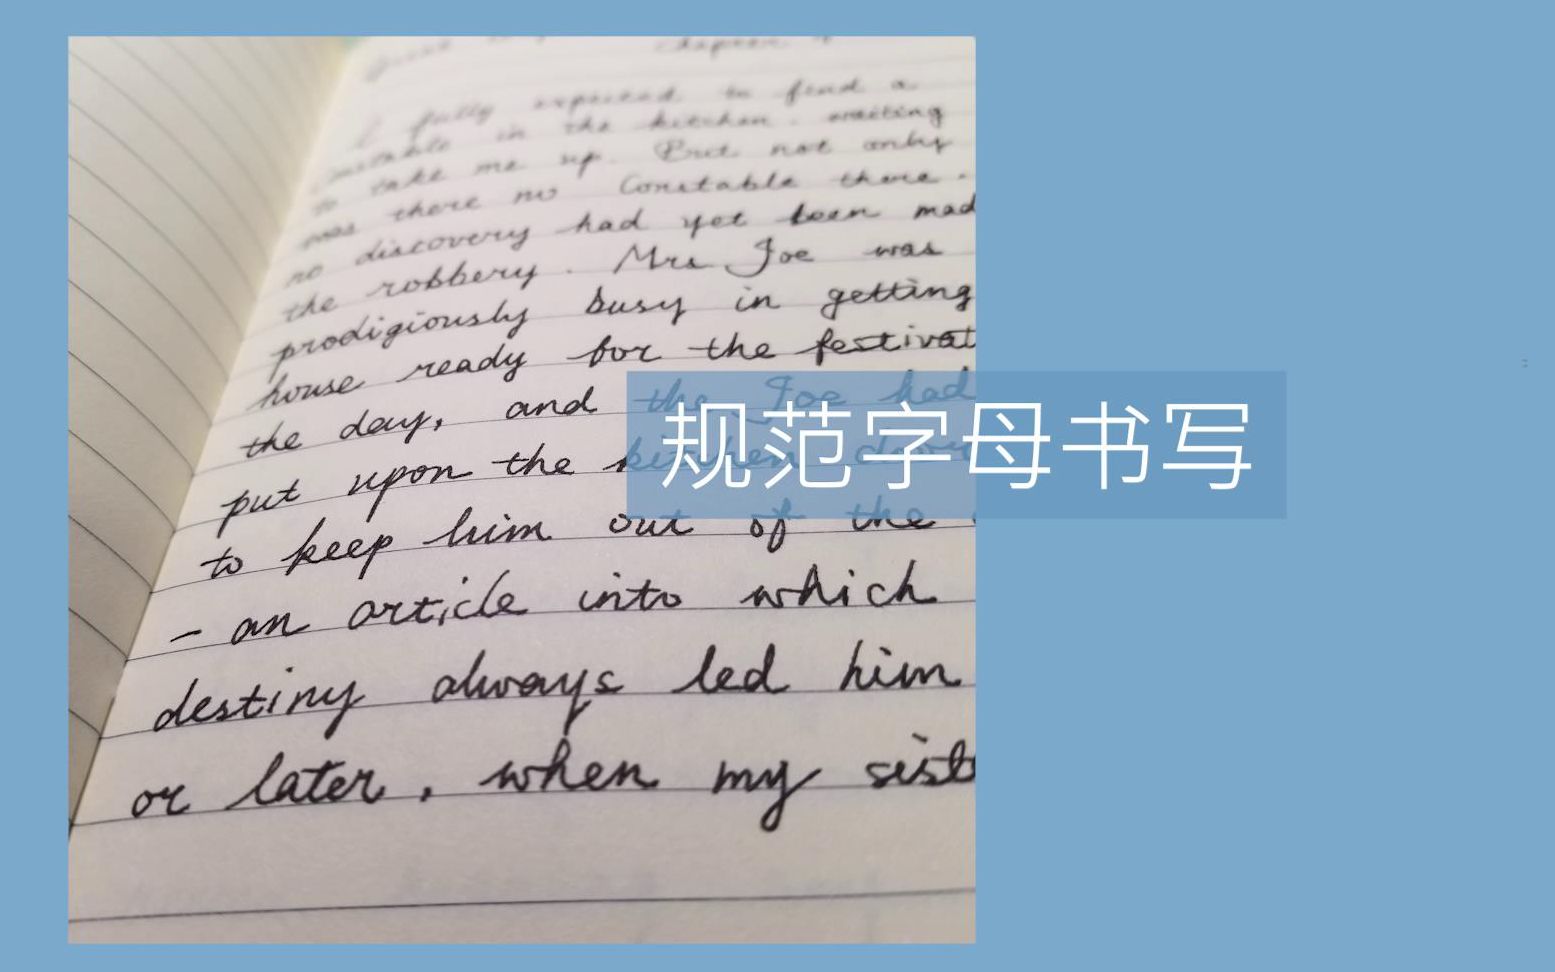 Chapter 4
I fully expected to find a
Constable in the kitchen. waiting
to take me up. But not only
was there no Constable there.
no discovery had yet been mad
the robbery. Mrs Joe was
prodigiously busy in getting
house ready for the festivat
the day, and the Joe had
put upon the kitchen door
to keep him out of the
- an article into which
destiny always led him
or later, when my sist
规范字母书写